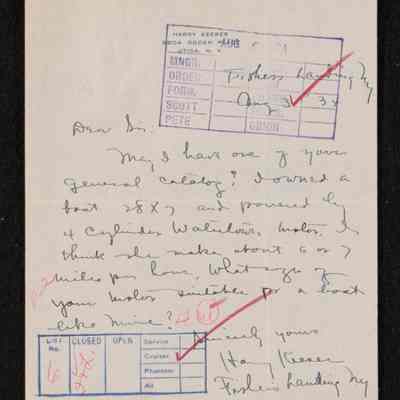 HARRY KEESER
UTICA, N.Y.
AUG
MNGR.
ORDER
FORM.
SCOTT
PETE
Fishers Landing Ny
Aug 31
Dear Sir:
May I have one of your
general catalog? I owned a
boat 28 X 7 and powered by
4 Cylinder Motor. I
think she makes about 6 or 7
miles per hour. What size of
your motor suitable for a boat
like mine?
Sincerely yours
Harry Keeser
Fishers Landing Ny
LIST No.
CLOSED
OPEN
Service
Cruiser
Phantom
All